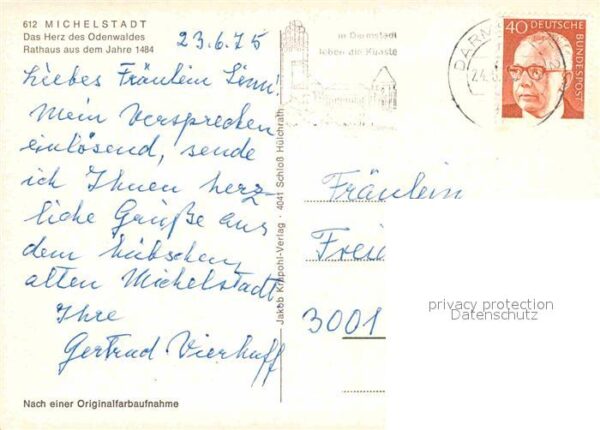 612 MICHELSTADT
Das Herz des Odenwaldes
Rathaus aus dem Jahre 1484
23.6.75
Liebes Fräulein
Mein Versprechen
einlösend, sende
ich Ihnen herz
liche Grüße aus
dem hübschen,
alten Michelstadt
Ihre
Gertrud Vierhuff
Nach einer Originalfarbaufnahme
Jakob Krapohl-Verlag · 4041 Schloß Hülchrath
in Darmstadt
leben die Künste
DARM
24.6
40 DEUTSCHE BUNDESPOST
Fräulein
Frei
3001
privacy protection
Datenschutz